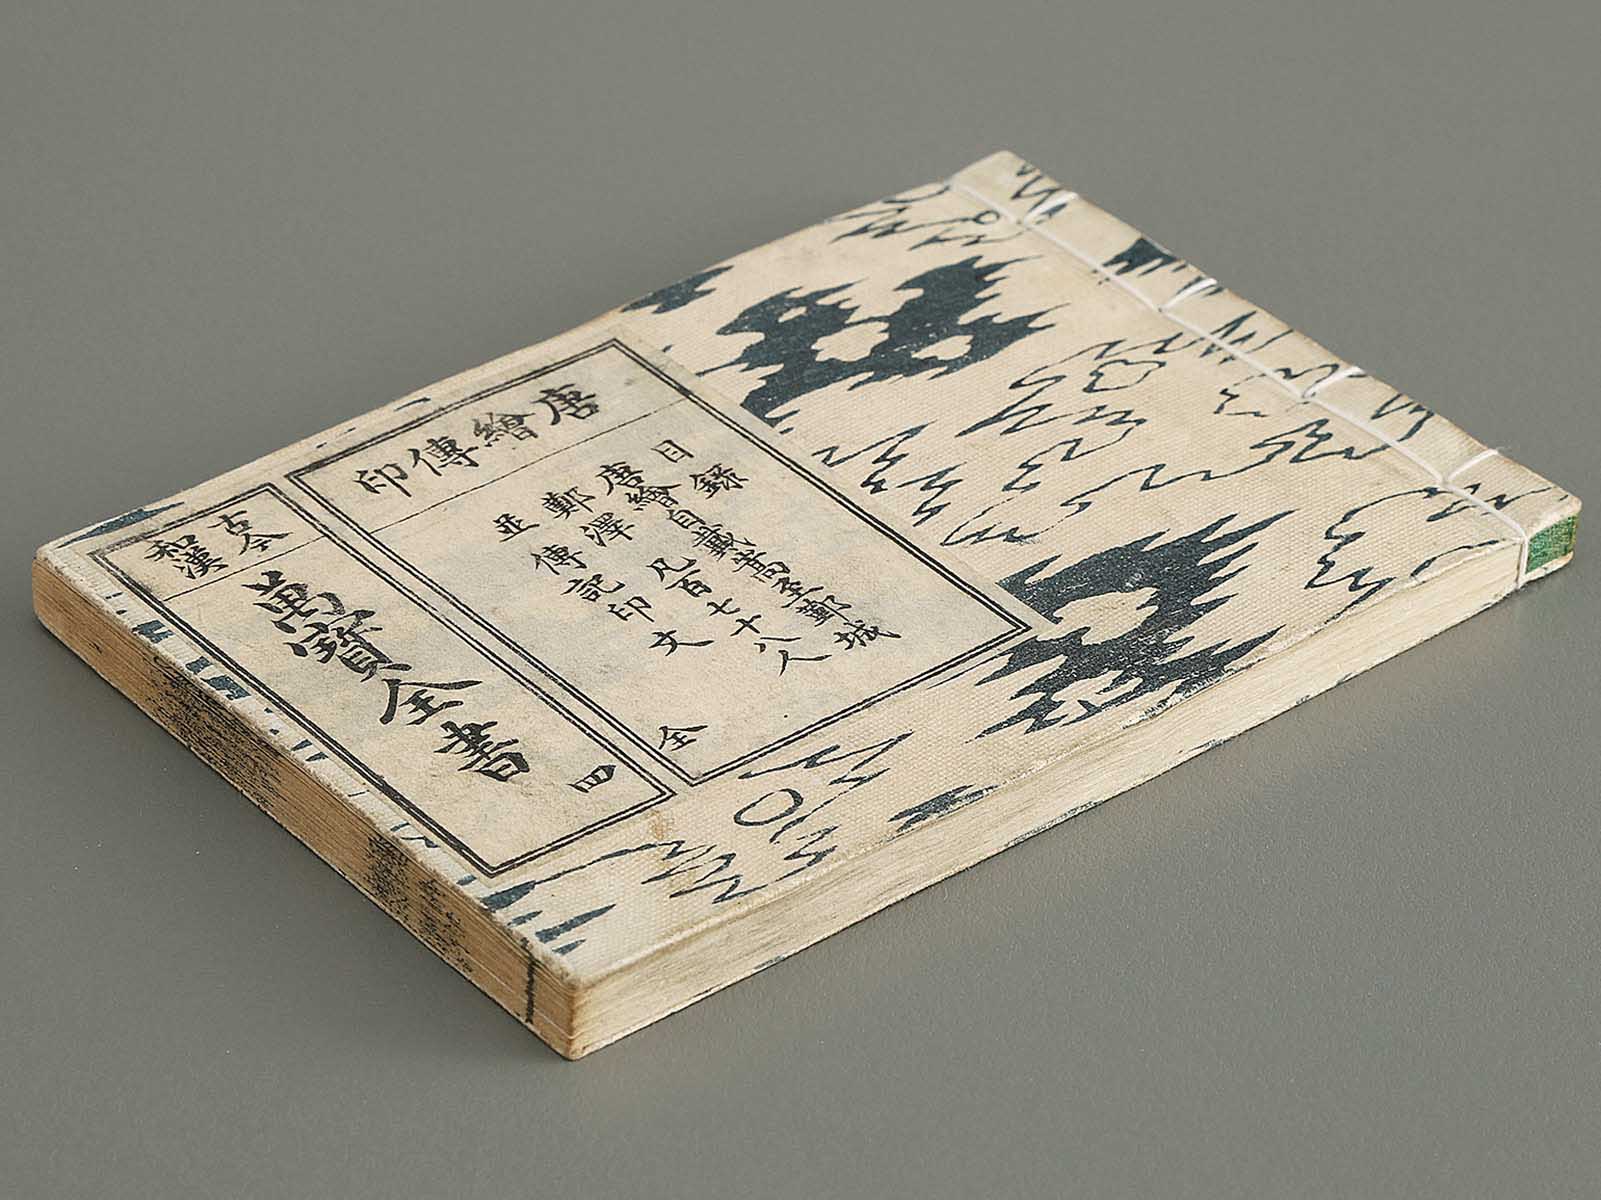 唐繪傳印
目録
唐繪自戴嵩至鄞城
鄭澤凡百七十八人
並傳記印文
全
古今
和漢
萬寶全書
四